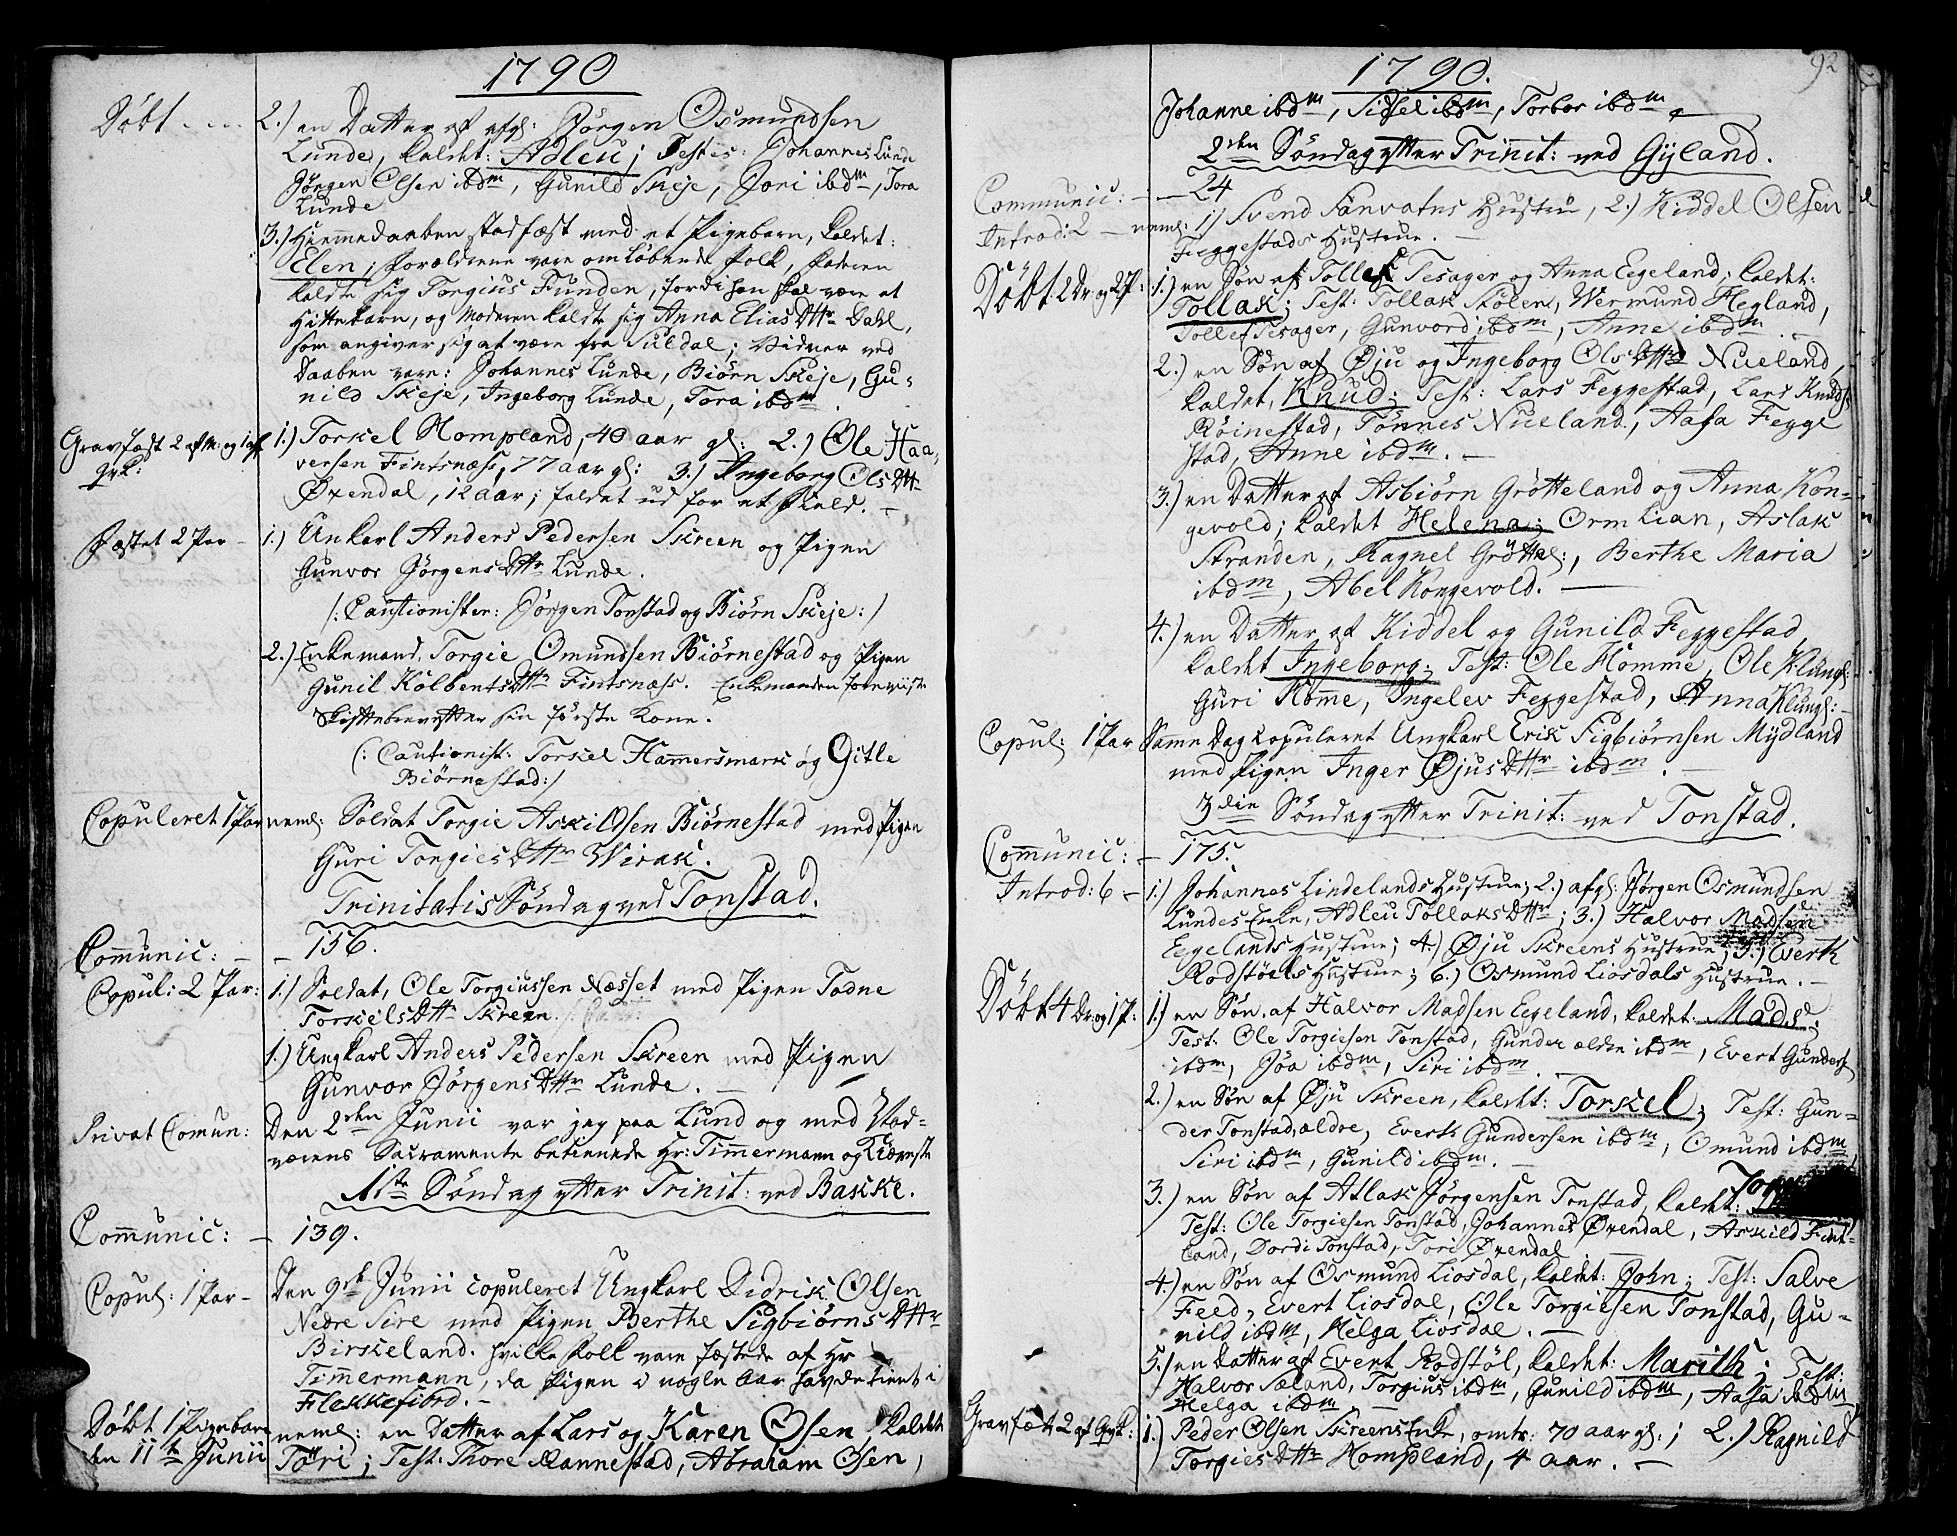 1790
Döbt - - - 2.) en Datter af afgl: Jörgen Osmundsen
Lunde, kaldet: Adleu; Testes: Johannes Lunde
Jörgen Olsen ibdm, Gunild Skeje, Joni ibdm, Tora
Lunde
3.) Hiemmedaaben stadfæst med et Pigebarn, kaldet:
Elen; forældrene vare omløbende folk, faderen
kaldte sig Torgius Funden, fordi han skal være et
Hittebarn, og Moderen kaldte sig Anna Elias Dttr Dahl,
som angiver sig at være fra Suldal; Vidner ved
Daaben vare: Johannes Lunde, Biörn Skeje, Gu-
nild Skeje, Ingeborg Lunde, Tora ibdm.
Gravfæst 2 af M: og 1 af 1.) Torkel Hompland, 40 aar gl: 2.) Ole Haa-
Qvk: versen Fintsnæss, 77 aar gl: 3.) Ingeborg Ols Dttr
Öxendal, 12 aar; faldet ud for et Field. -
Fæstet 2 Par - 1.) Unkarl Anders Pedersen Skreen og Pigen
Gunvor Jörgens Dttr Lunde.
/: Cautionister: Jörgen Tonstad og Biörn Skeje :/
2.) Enkemand Torgie Omundsen Biörnestad og Pigen
Gunil Kolbents Dttr Fintsnæss. Enkemanden foreviiste
Skiftebrev efter sin første Kone.
(: Cautionist: Torkel Hamersmark og Gitle
Biörnestad :/
Copuleret 1 Par neml: Soldat Torgie Askildsen Biörnestad med Pigen
Guri Torgies Dttr Wirak.
Trinitatis Söndag ved Tonstad.
Comunic: - - 156.
Copul: 2 Par: 1.) Soldat, Ole Torgiussen Næsset med Pigen Todne
Torkels Dttr Skreen.
1.) Ungkarl Anders Pedersen Skreen med Pigen
Gunvor Jörgens Dttr Lunde. -
Privat Comun: Den 2den Junii var jeg paa Lund og med Nad-
værens Sacramente betienede Hr: Timmermann og Kiæreste
1ste Söndag efter Trinit: ved Bakke.
Comunic: - 139.
Copul: 1 Par - Den 9de Junii copuleret Ungkarl Didrik Olsen
Nedre Sire med Pigen Berthe Sigbiörns Dttr
Birkeland. hvilke Folk vare fæstede af Hr
Timmermann, da Pigen i nogle Aar havde tient i
Flekkefiord. -
Döbt 1 Pigebarn neml: en datter af Lars og Karen Osen, kaldet
den 11te Junii Tori; Test: Thore Rannestad, Abraham Osen,
92
1790.
Johanne ibdm, Sidsel ibdm, Torbor ibdm
2den Söndag efter Trinit: ved Gyland.
Communic: - - 24
Introd: 2 - neml: 1) Svend Sanvatns Hustru, 2.) Kiddel Olsen
Feggestads Hustrue. -
Döbt 2 Dr. og 2 P: 1.) en Sön af Tollef Tesager og Anna Eegeland; kaldet:
Tollak; Test: Tollak Skolen, Wermund Hegland,
Tollef Tesager, Gunvord ibdm, Anne ibdm. -
2.) en Sön af Öju og Ingeborg Ols Dttr Nueland,
kaldet, Knud; Test: Lars Feggestad, Lars Knuds:
Röinestad, Tönnes Nueland, Aasa Fegge
stad, Anne ibdm. -
3.) en Datter af Asbiörn Grötteland og Anna Kon-
gevold; kaldet Helena; Orm Lian, Aslak
Stranden, Ragnel Gröttel:, Berthe Maria
ibdm, Abel Kongevold. -
4.) en Datter af Kiddel og Gunild Feggestad
kaldet Ingeborg; Test: Ole Homme, Ole Klungl:
Guri Home, Ingelev Feggestad, Anna Klungl: -
Copul: 1 Par Same Dag copuleret Ungkarl Erik Sigbiörnsen Mydland
med Pigen Inger Öjus Dttr ibdm. -
3die Söndag efter Trinit: ved Tonstad.
Comunic: - 175.
Introd: 6 - 1.) Johannes Lindelands Hustrue; 2.) afgl: Jörgen Osmundsen
Lundes Enke, Adleu Tollaks Dttr; 3.) Halvor Madsen
Eegelands Hustrue; 4.) Öju Skreens Hustrue; 5.) Everth
Rodstöels Hustrue; 6.) Osmund Liosdals Hustrue. -
Döbt 4 Dr. og 1 P: 1.) en Sön af Halvor Madsen Eegeland, kaldet: Mads.
Test: Ole Torgiesen Tonstad, Gunder ældre ibdm, Evert Gunders:
ibdm, Jöa ibdm, Siri ibdm.
2.) en Sön af Öju Skreen, kaldet: Torkel; Test: Gun-
der Tonstad, ældre, Everth Gundersen ibdm, Omund ibdm,
Siri ibdm, Gunild ibdm. -
3.) en Sön af Atlak Jörgensen Tonstad, kaldet:
Test: Ole Torgiesen Tonstad, Johannes Öxendal, Askild Fint-
land, Dordi Tonstad, Tori Öxendal
4.) en Sön af Osmund Liosdal, kaldet: John; Test: Salve
Feed, Evert Liosdal, Ole Torgiesen Tonstad, Gu-
nild ibdm, Helga Liosdal. -
5.) en Datter af Evert Rodstöl, kaldet: Marith; Test:
Halvor Sæland, Torgius ibdm, Gunild ibdm, Aasa ibdm
Helga ibdm -
Gravfæst 2 af Qvk: 1.) Peder Olsen Skreens Enke, omtr: 70 aar gl:; 2.) Ragnild
Torgies Dttr Hompland, 4 aar. -